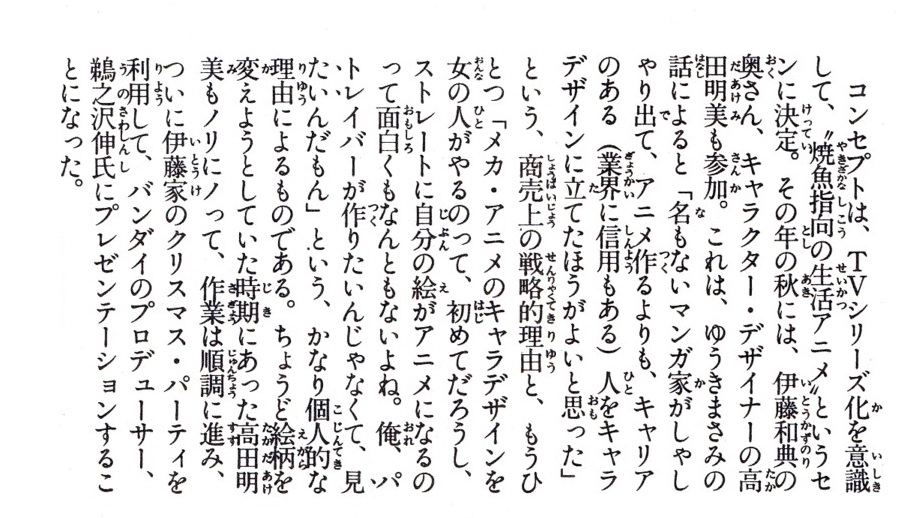 コンセプトは、TVシリーズ化を意識
して、〝焼魚指向の生活アニメ〟というセ
ンに決定。その年の秋には、伊藤和典の
奥さん、キャラクター・デザイナーの高
田明美も参加。これは、ゆうきまさみの
話によると「名もないマンガ家がしゃし
ゃり出て、アニメ作るよりも、キャリア
のある（業界に信用もある）人をキャラ
デザインに立てたほうがよいと思った」
という、商売上の戦略的理由と、もうひ
とつ「メカ・アニメのキャラデザインを
女の人がやるのって、初めてだろうし、
ストレートに自分の絵がアニメになるの
って面白くもなんともないよね。俺、パ
トレイバーが作りたいんじゃなくて、見
たいんだもん」という、かなり個人的な
理由によるものである。ちょうど絵柄を
変えようとしていた時期にあった高田明
美もノリにノって、作業は順調に進み、
ついに伊藤家のクリスマス・パーティを
利用して、バンダイのプロデューサー、
鵜之沢伸氏にプレゼンテーションするこ
とになった。